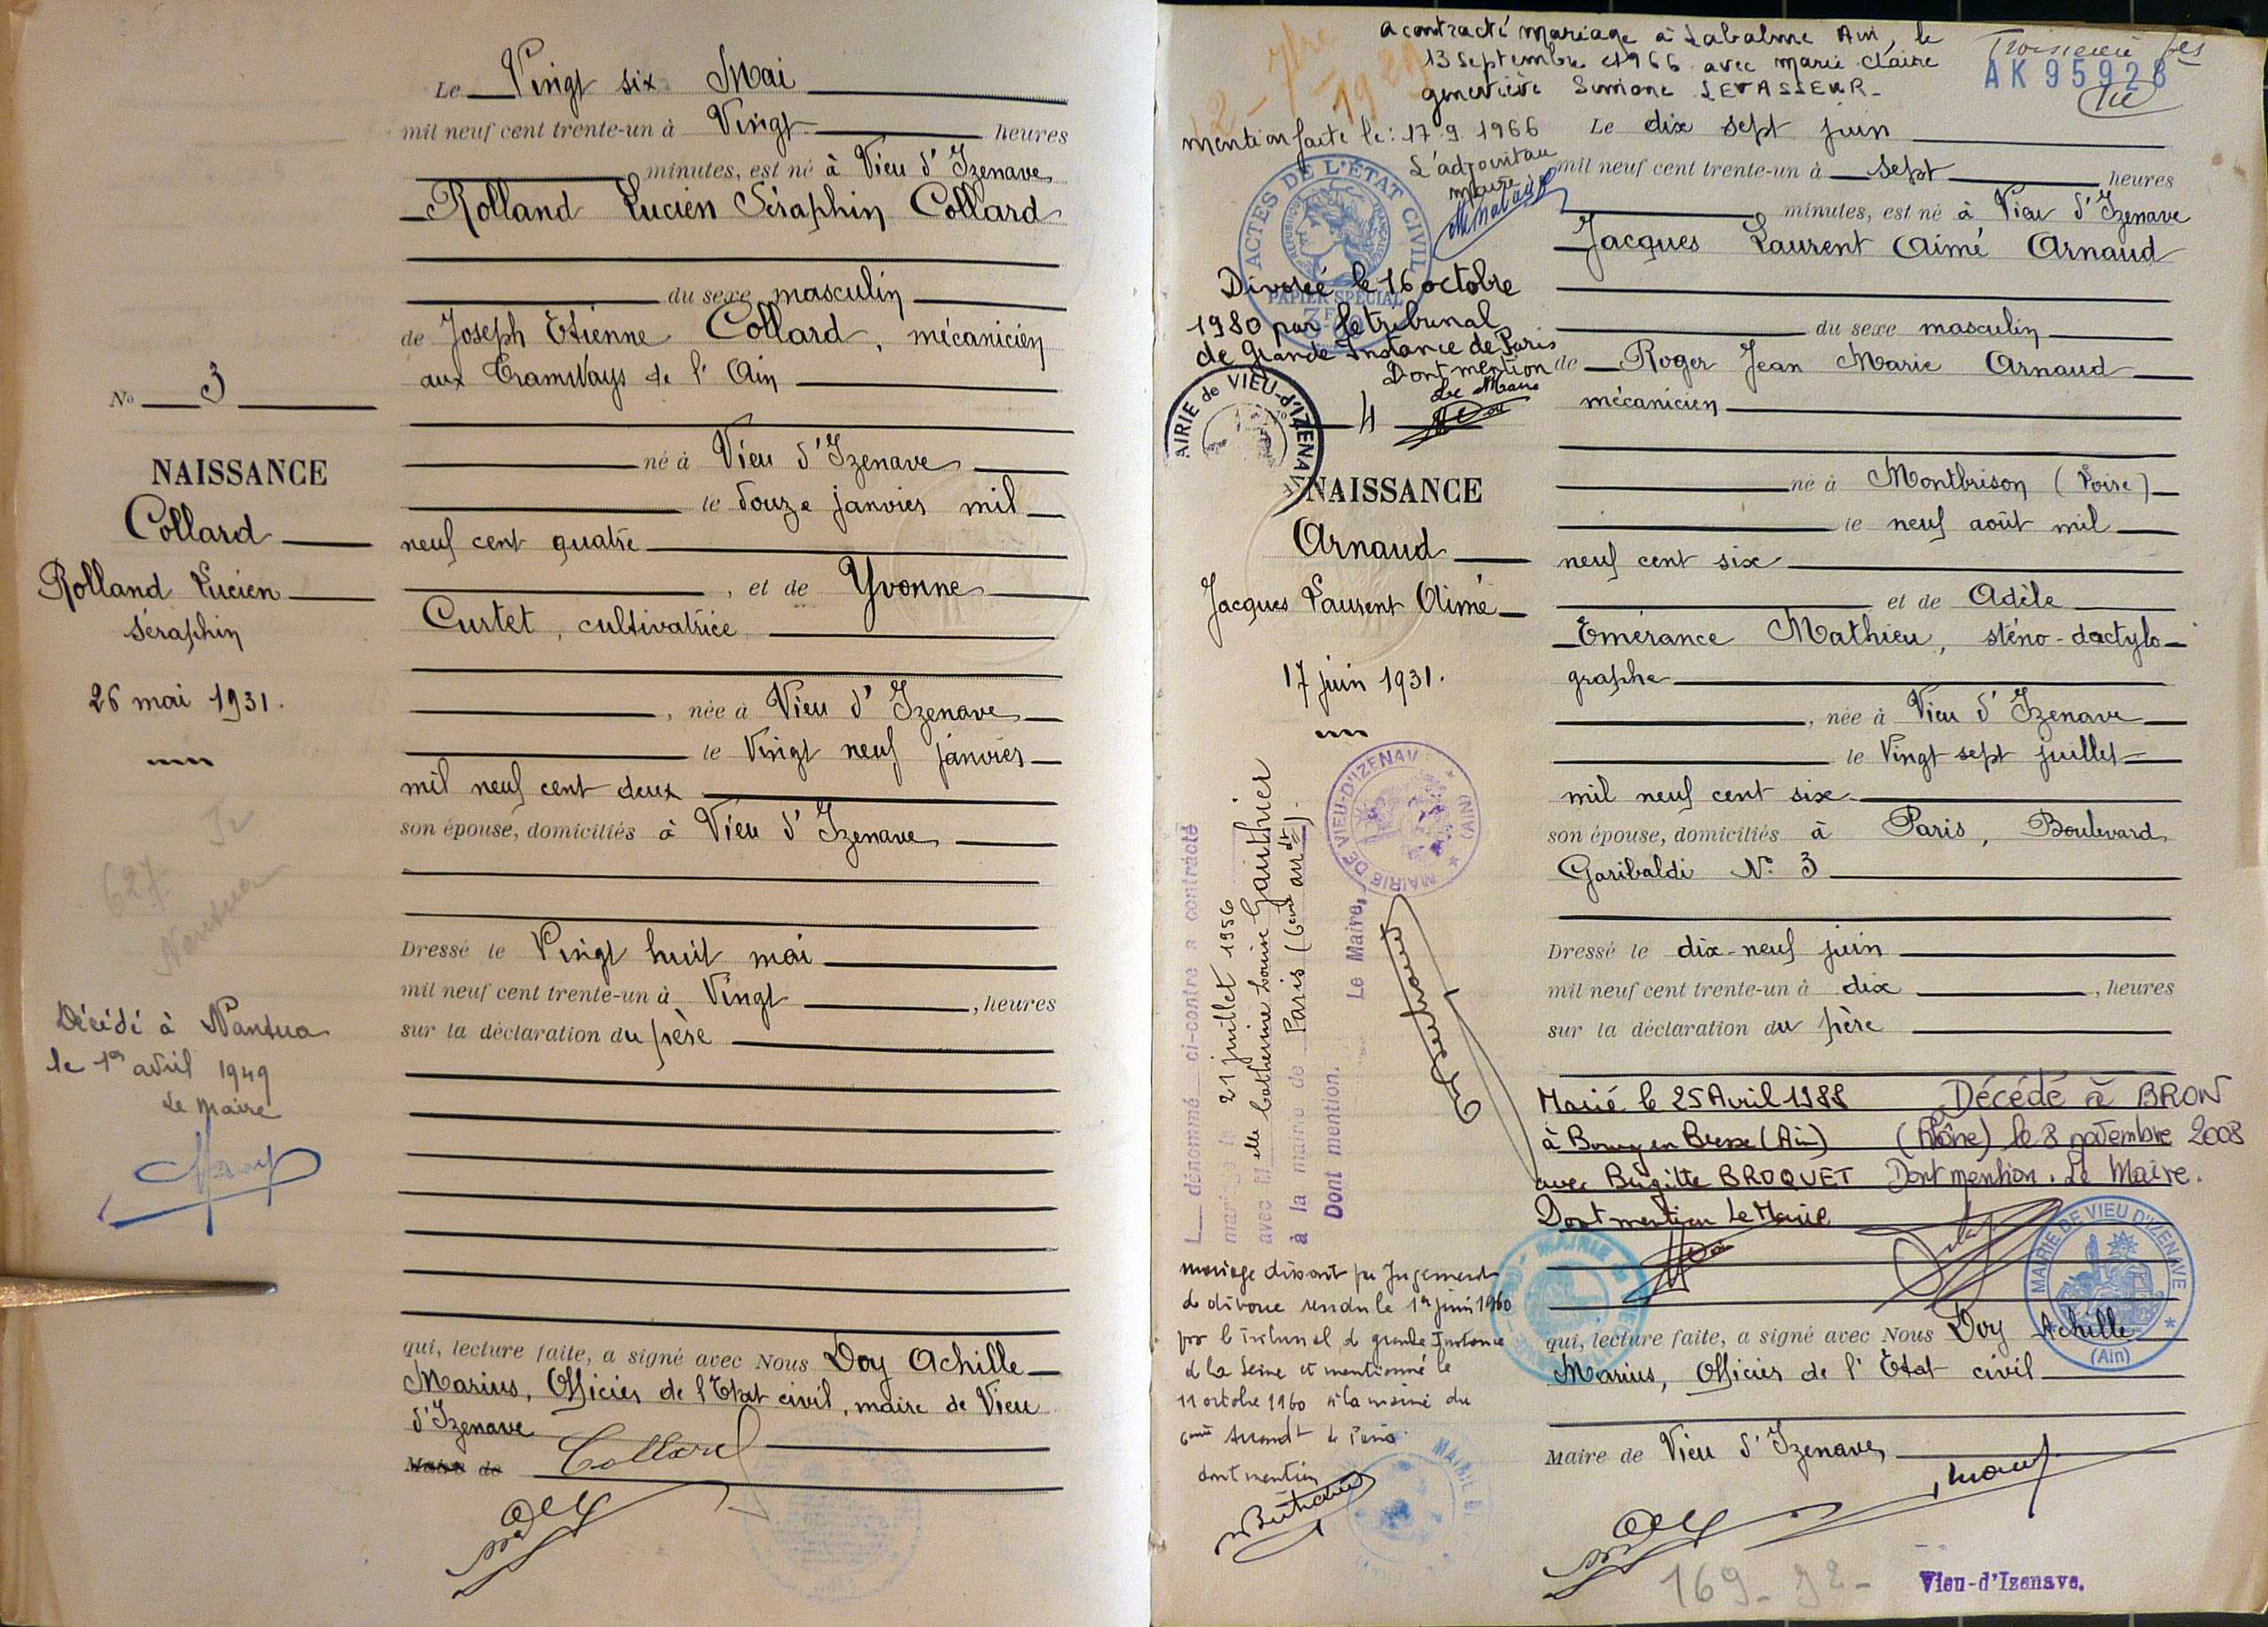 Le Vingt six Mai
mil neuf cent trente-un à Vingt heures
minutes, est né à Vieu d'Izenave
Rolland Lucien Séraphin Collard
du sexe masculin
de Joseph Etienne Collard, mécanicien
aux Tramways de l'Ain
né à Vieu d'Izenave
le douze janvier mil
neuf cent quatre
, et de Yvonne
Curtet, cultivatrice
, née à Vieu d'Izenave
le Vingt neuf janvier
mil neuf cent deux
son épouse, domiciliés à Vieu d'Izenave
Dressé le Vingt huit mai
mil neuf cent trente-un à Vingt , heures
sur la déclaration du père
qui, lecture faite, a signé avec Nous Doy Achille
Marius, Officier de l'Etat civil, maire de Vieu
d'Izenave
Maire de
Collard
No 3
NAISSANCE
Collard
Rolland Lucien
Séraphin
26 mai 1931.
627
Nantua
Décédé à Nantua
le 1er avril 1949
Le Maire
a contracté mariage à Labalme Ain, le
13 septembre 1966 avec Marie Claire
Geneviève Simone LEVASSEUR
mention faite le : 17 9 1966
L'adjoint au
maire
Troisième
AK 95928
ACTES DE L'ÉTAT CIVIL
RÉPUBLIQUE FRANÇAISE
PAPIER SPÉCIAL
Divorcé le 16 octobre
1980 par le tribunal
de Grande Instance de Paris
Dont mention
Le Maire
MAIRIE de VIEU-d'IZENAVE
4
NAISSANCE
Arnaud
Jacques Laurent Aimé
17 juin 1931.
MAIRIE DE VIEU-D'IZENAVE (AIN)
L dénommé ci-contre a contracté
mariage le 21 juillet 1956
avec Melle Catherine Louise Gauthier
à la mairie de Paris (6ème arrdt).
Dont mention. Le Maire,
mariage dissout par Jugement
de divorce rendu le 1er juin 1960
par le Tribunal de grande Instance
de la Seine et mentionné le
11 octobre 1960 à la mairie du
6ème Arrondt de Paris.
dont mention
Le dix sept juin
mil neuf cent trente-un à sept heures
minutes, est né à Vieu d'Izenave
Jacques Laurent Aimé Arnaud
du sexe masculin
de Roger Jean Marie Arnaud
mécanicien
né à Montbrison (Loire)
le neuf août mil
neuf cent six
et de Adèle
Emérance Mathieu, sténo-dactylo-
graphe
, née à Vieu d'Izenave
le Vingt sept juillet
mil neuf cent six
son épouse, domiciliés à Paris, Boulevard
Garibaldi N° 3
Dressé le dix-neuf juin
mil neuf cent trente-un à dix , heures
sur la déclaration du père
Marié le 25 Avril 1988
à Bourg en Bresse (Ain)
avec Brigitte BROQUET
Dont mention Le Maire
Décédé à BRON
(Rhône) le 8 novembre 2008
Dont mention. Le Maire.
MAIRIE DE VIEU D'IZENAVE
(Ain)
qui, lecture faite, a signé avec Nous Doy Achille
Marius, Officier de l'Etat civil
Maire de Vieu d'Izenave
169-72-
Vieu-d'Izenave.